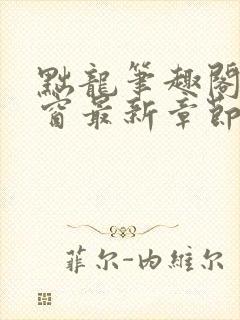 點龍筆趣閣
窗最新章節
菲尔-内維尔